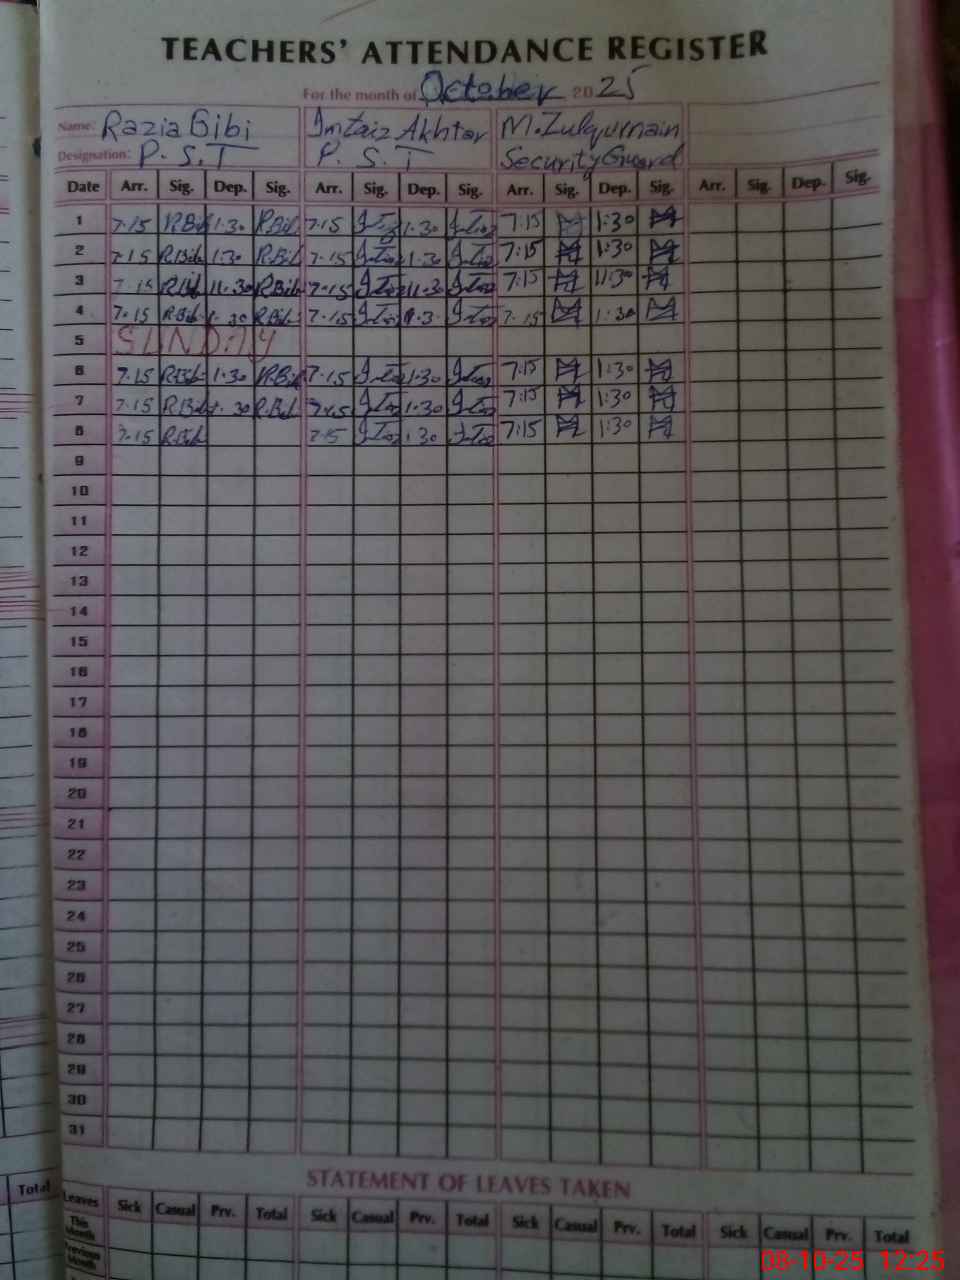 TEACHERS' ATTENDANCE REGISTER
For the month of October 2025
Name: Razia Bibi Imtaiz Akhtar M. Zulqurnain
Designation: P. S. T P. S. T Security Guard
Date Arr. Sig. Dep. Sig. Arr. Sig. Dep. Sig. Arr. Sig. Dep. Sig. Arr. Sig. Dep. Sig.
1 7.15 R.Bib 1.30 R.Bib 7.15 1.30 7:15 1:30
2 7.15 R.Bib 1.30 R.Bib 7.15 1.30 7:15 1:30
3 7.15 R.Bib 11.30 R.Bib 7.15 11.30 7:15 11:30
4 7.15 R.Bib 1.30 R.Bib 7.15 1.3 7.15 1:30
5 SUNDAY
6 7.15 R.Bib 1.30 R.Bib 7.15 1.30 7:15 1:30
7 7.15 R.Bib 1.30 R.Bib 7.15 1.30 7:15 1:30
8 7.15 R.Bib 7.15 1.30 7:15 1:30
9
10
11
12
13
14
15
16
17
18
19
20
21
22
23
24
25
26
27
28
29
30
31
STATEMENT OF LEAVES TAKEN
Total
Leaves Sick Casual Prv. Total Sick Casual Prv. Total Sick Casual Prv. Total Sick Casual Prv. Total
This Month
Previous Month
08-10-25 12:25